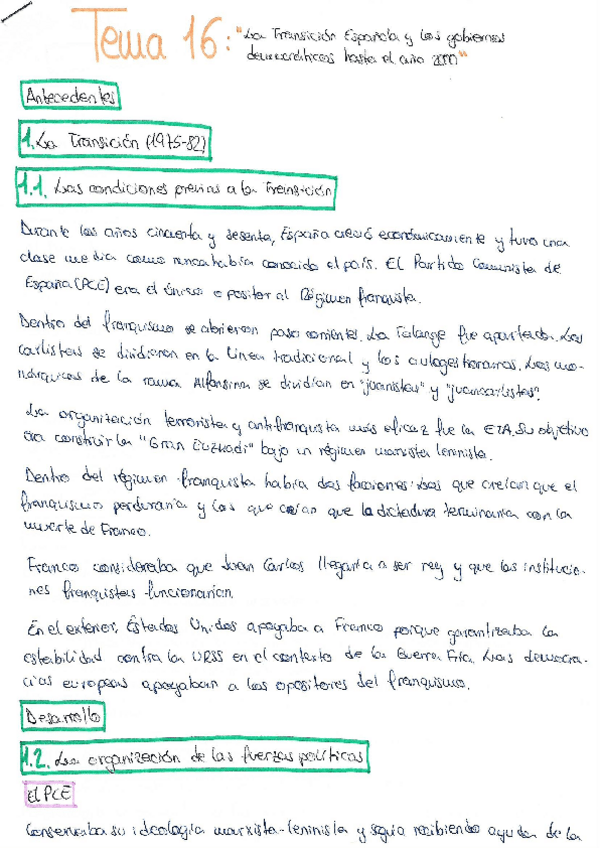 Tema 16: "La Transición Española y los gobiernos
democráticos hasta el año 2000"
Antecedentes
1. La Transición (1975-82)
1.1. Las condiciones previas a la Transición
Durante los años cincuenta y sesenta, España creció económicamente y tuvo una
clase media como nunca había conocido el país. El Partido Comunista de
España (PCE) era el único opositor al Régimen franquista.
Dentro del franquismo se abrieron paso corrientes. La Falange fue apartada. Los
carlistas se dividieron en la línea tradicional y los autogestionarios. Los mo-
nárquicos de la rama Alfonsina se dividían en "juanistas" y "juancarlistas".
La organización terrorista y antifranquista más eficaz fue la ETA. Su objetivo
era construir la "Gran Euzkadi" bajo un régimen marxista leninista.
Dentro del régimen franquista había dos facciones: Los que creían que el
franquismo perduraría y los que creían que la dictadura terminaría con la
muerte de Franco.
Franco consideraba que Juan Carlos llegaría a ser rey y que las institucio-
nes franquistas funcionarían.
En el exterior, Estados Unidos apoyaba a Franco porque garantizaba la
estabilidad contra la URSS en el contexto de la Guerra Fría. Las democra-
cias europeas apoyaban a los opositores del franquismo.
Desarrollo
1.2. La organización de las fuerzas políticas
El PCE
Conservaba su ideología marxista-leninista y seguía recibiendo ayuda de la